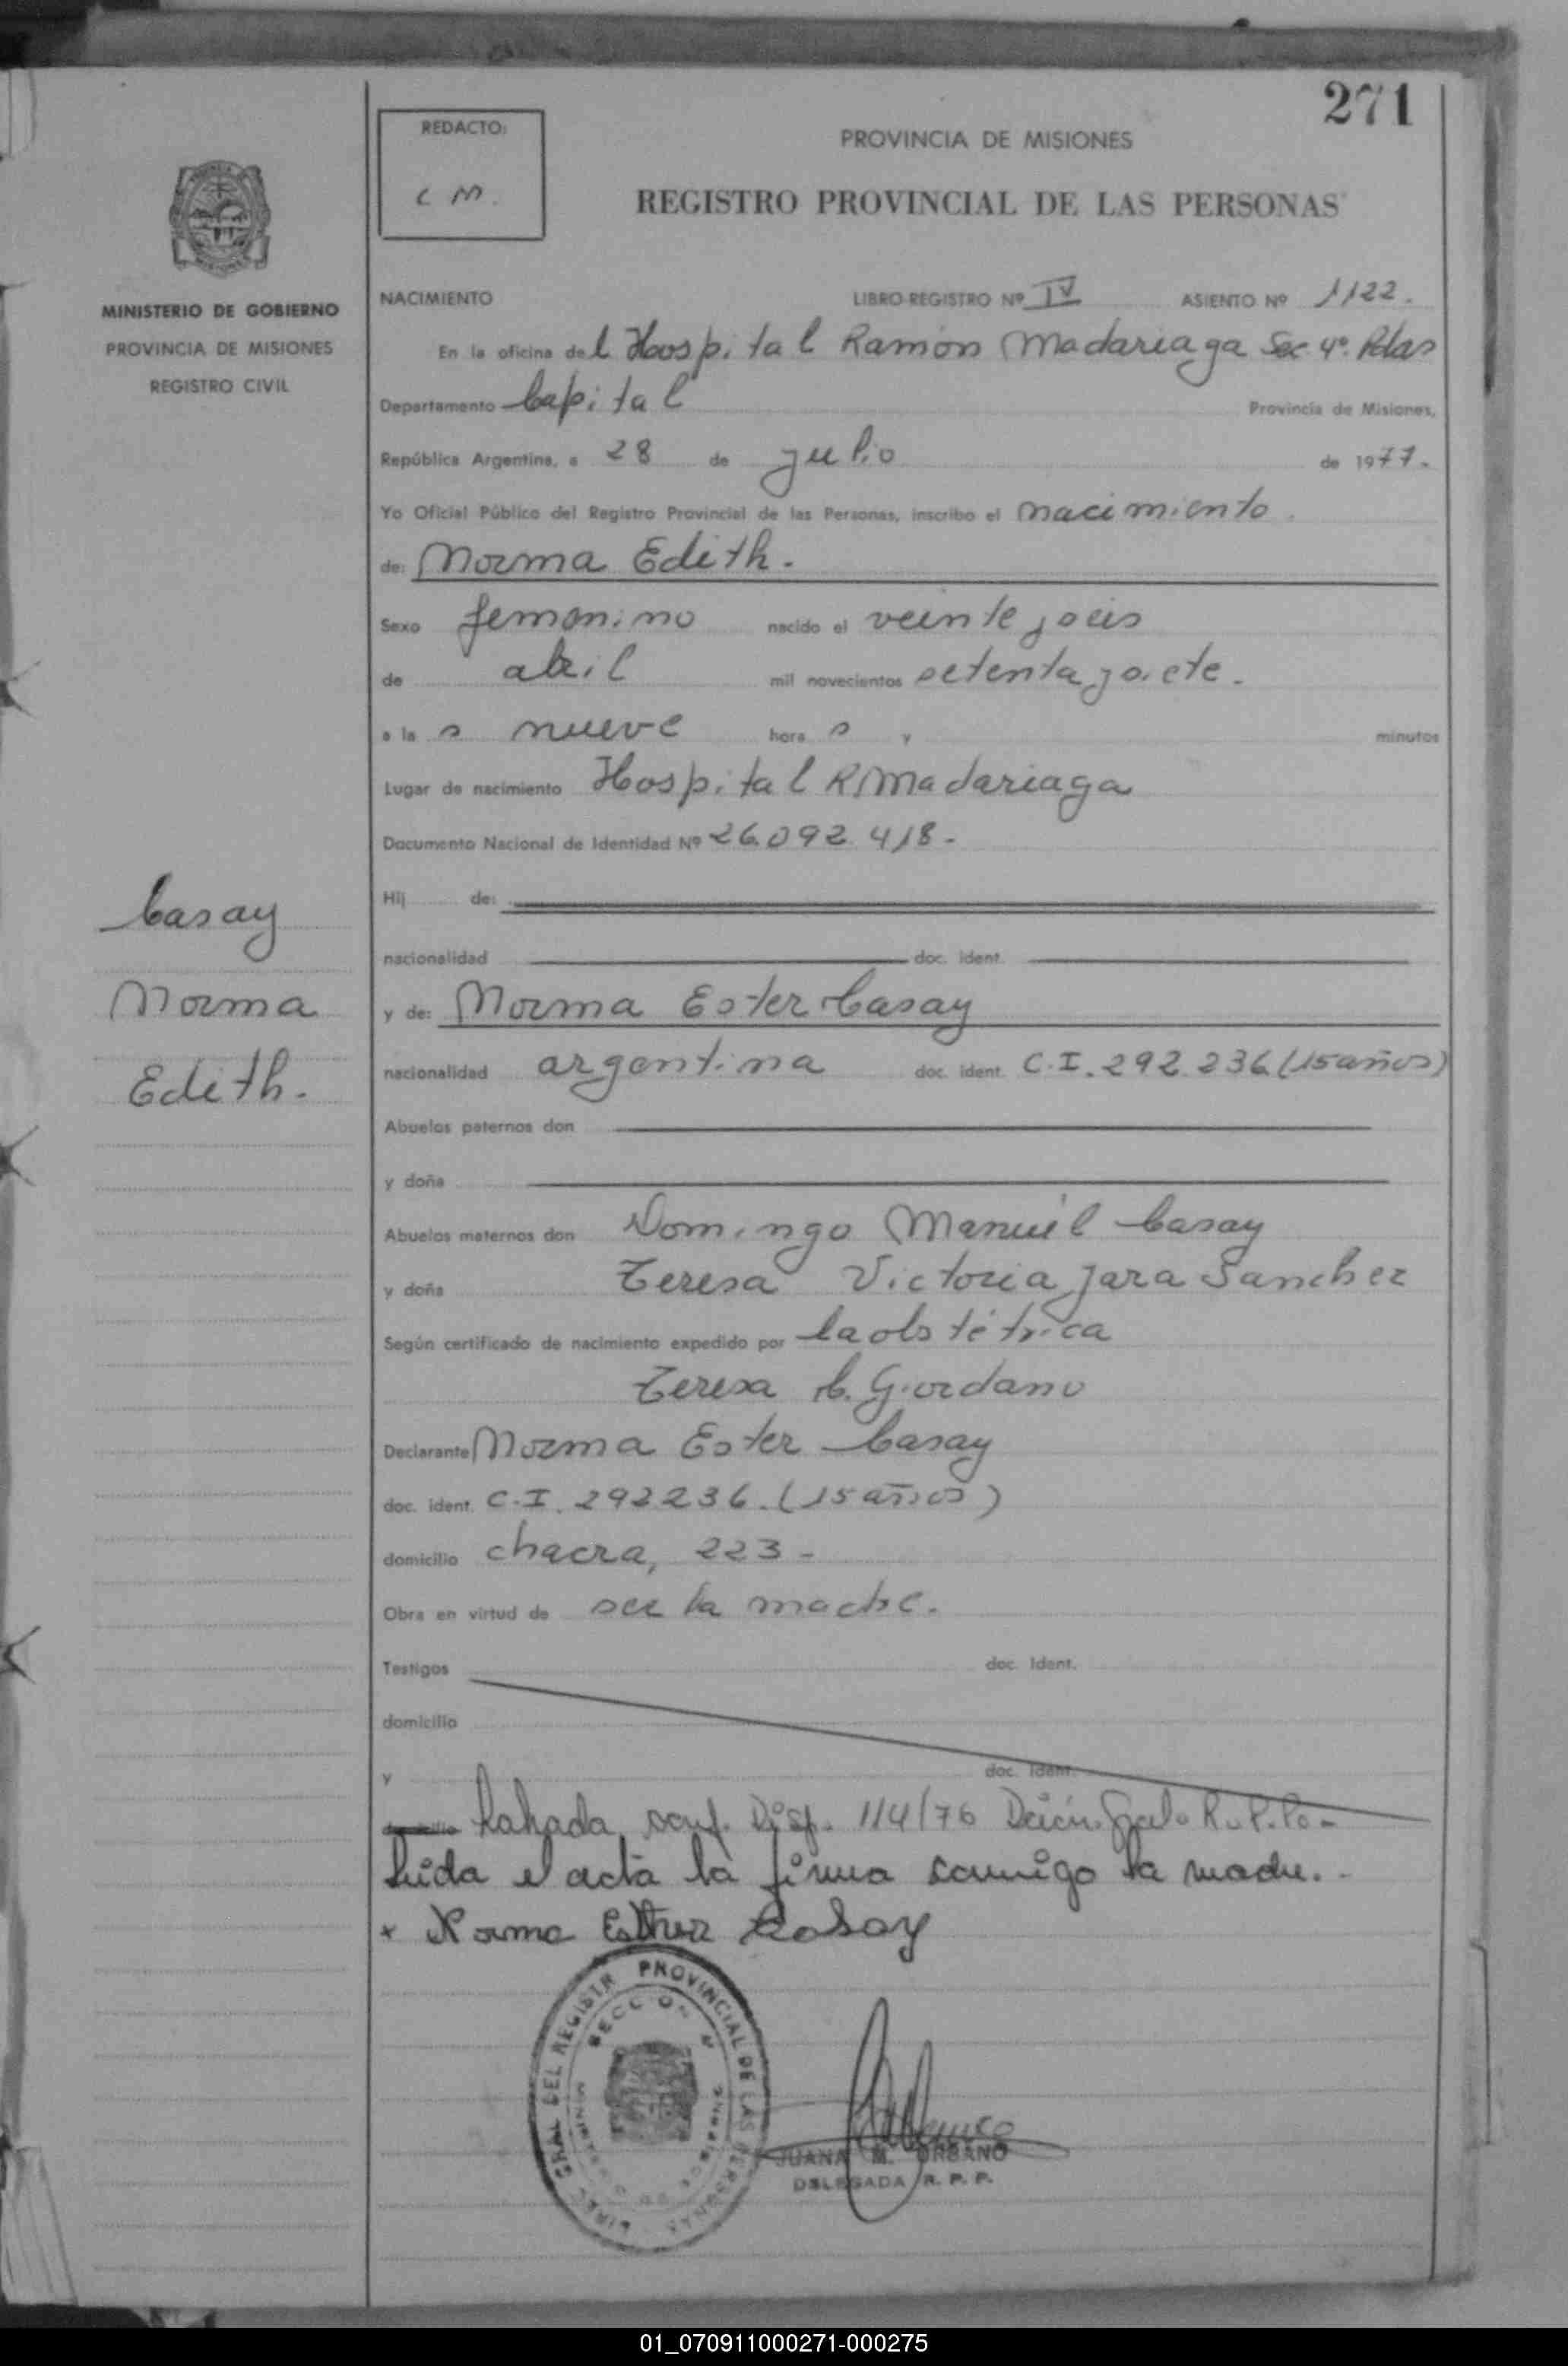 271
REDACTO:
C M.
PROVINCIA DE MISIONES
REGISTRO PROVINCIAL DE LAS PERSONAS
MINISTERIO DE GOBIERNO
PROVINCIA DE MISIONES
REGISTRO CIVIL
NACIMIENTO LIBRO-REGISTRO Nº IV ASIENTO Nº 1122.
En la oficina del Hospital Ramón Madariaga Sec 4º. Pdas
Departamento Capital Provincia de Misiones,
República Argentina, a 28 de julio de 1977.
Yo Oficial Público del Registro Provincial de las Personas, inscribo el nacimiento.
de: Norma Edith.
Sexo femenino nacido el veintejseis
de abril mil novecientos setentajsiete.
a la s nueve hora s y minutos
Lugar de nacimiento Hospital R. Madariaga
Documento Nacional de Identidad Nº 26.092.418-
Hij de:
nacionalidad doc. ident.
Casay
Norma
Edith.
y de: Norma Ester Casay
nacionalidad argentina doc. ident. C.I. 292.236 (15 años)
Abuelos paternos don
y doña
Abuelos maternos don Domingo Manuel Casay
y doña Teresa Victoria Jara Sanchez
Según certificado de nacimiento expedido por la obstétrica
Teresa C. Giordano
Declarante Norma Ester Casay
doc. ident. C.I. 292236. (15 años)
domicilio chacra, 223-
Obra en virtud de ser la madre.
Testigos doc. Ident.
domicilio
y doc. Ident.
domicilio Disp. 1/4/76
Leida el acta la firma conmigo la madre.-
+ Norma Esther Casay
DEL REGISTR PROVINCIAL DE LAS PERSONAS
SECCION
JUANA M. URBANO
DELEGADA R. P. P.
01_070911000271-000275